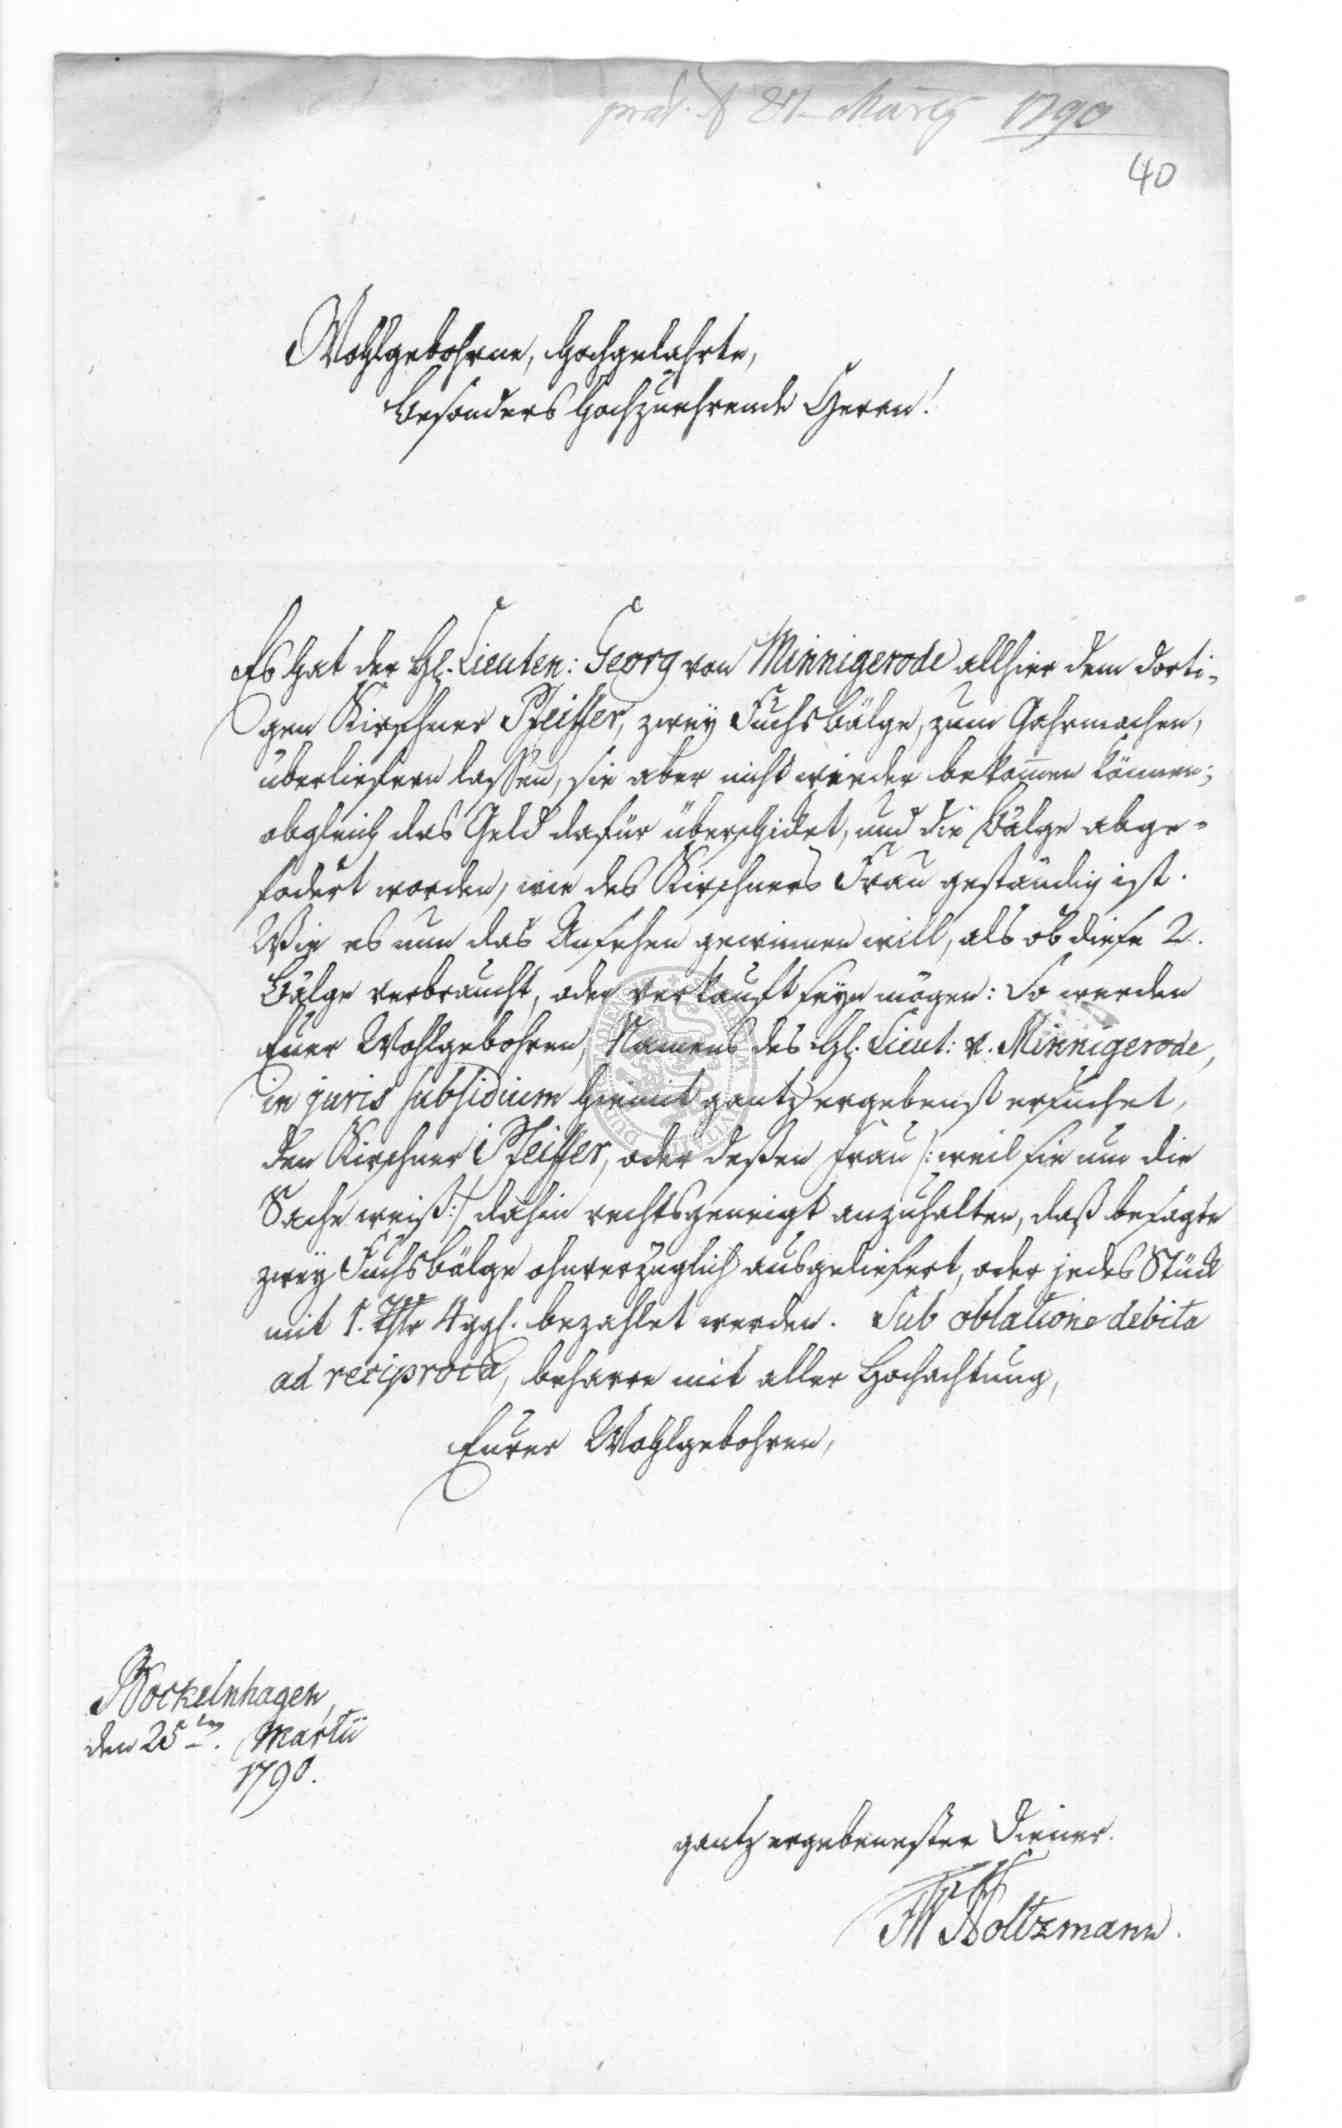 præs. d 27. Martz 1790
40
Wohlgebohrne, Hochgelahrte,
besonders Hochzuehrende Herren!
Es hat der H. Lieuten: Georg von Minnigerode allhier dem dorti-
gen Kirschner Pfeiffer, zwey Fuchsbälge, zum Gahrmachen,
überliefern lassen, sie aber nicht wieder bekom̄en können;
obgleich das Geld dafür überschicket, und die Bälge abge-
fodert worden, wie des Kirschners Frau geständig ist.
Wie es nun das Ansehen gewinnen will, als ob diese 2.
Bälge verbraucht, oder verkauft seyn mögen: So werden
Euer Wohlgebohren, Namens des H. Lieut: v. Minnigerode,
in juris subsidium hiemit gantz ergebenst ersuchet,
den Kirschner Pfeiffer, oder deßen Frau /: weil sie um die
Sache weiß :/ dahin rechtsgeneigt anzuhalten, daß besagte
zwey Fuchsbälge ohnverzüglich ausgeliefert, oder jedes Stück
mit 1. Thlr 4 ggl. bezahlet werden. Sub oblatione debita
ad reciproca, beharre mit aller Hochachtung,
Eurer Wohlgebohren,
Bockelnhagen,
den 25ten. Martii
1790.
gantz ergebenster Diener.
Holtzmann.